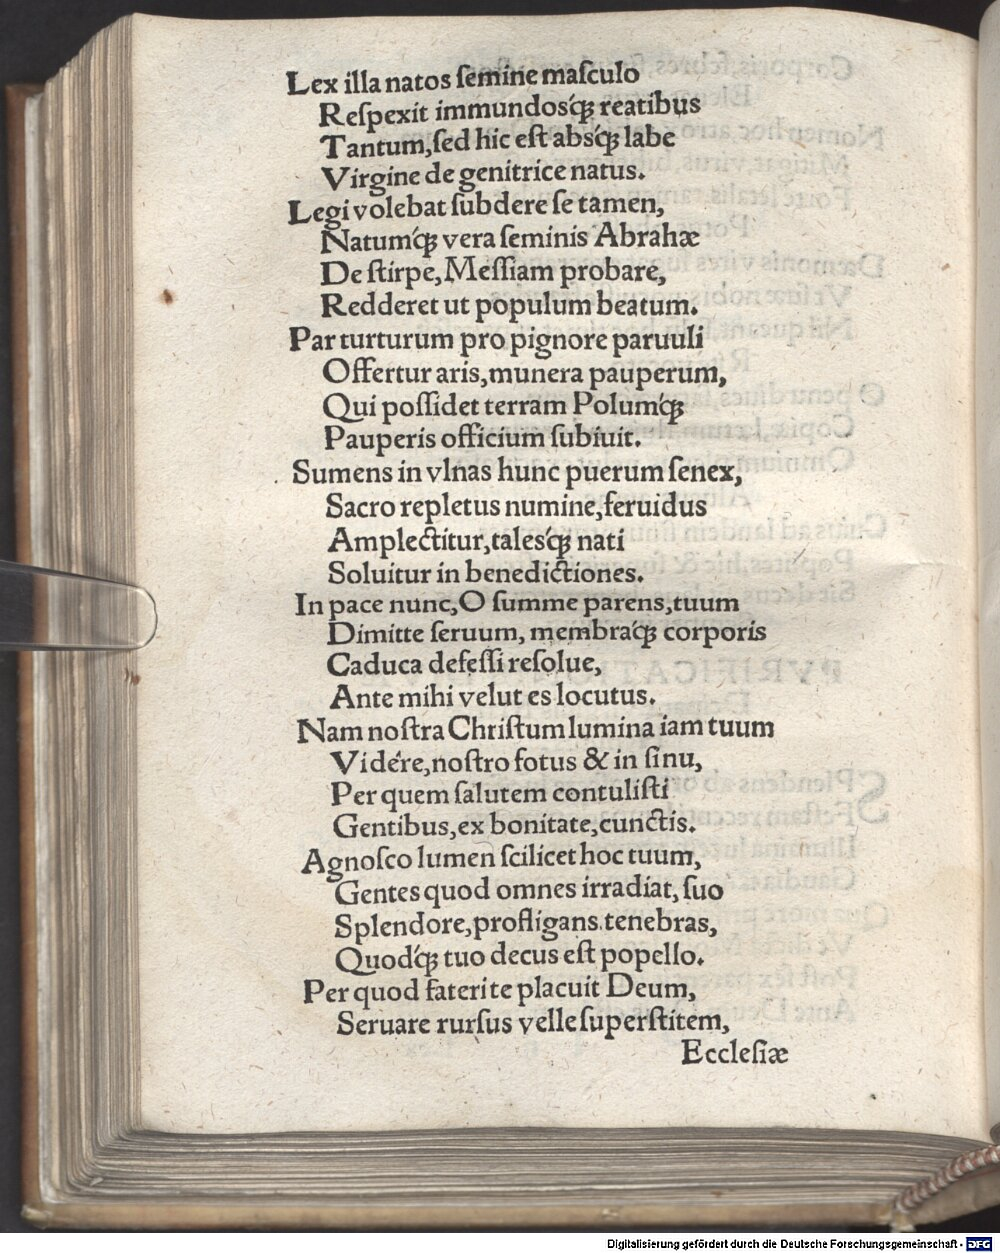 Lex illa natos ſemine maſculo
Reſpexit immundosq́ꝫ reatibus
Tantum, ſed hic eſt absq́ꝫ labe
Virgine de genitrice natus.
Legi volebat ſubdere ſe tamen,
Natumq́ꝫ vera ſeminis Abrahæ
De ſtirpe, Meſſiam probare,
Redderet ut populum beatum.
Par turturum pro pignore paruuli
Offertur aris, munera pauperum,
Qui poſſidet terram Polumq́ꝫ
Pauperis officium ſubiuit.
Sumens in vlnas hunc puerum ſenex,
Sacro repletus numine, feruidus
Amplectitur, talesq́ꝫ nati
Soluitur in benedictiones.
In pace nunc, O ſumme parens, tuum
Dimitte ſeruum, membraq́ꝫ corporis
Caduca defeſſi reſolue,
Ante mihi velut es locutus.
Nam noſtra Chriſtum lumina iam tuum
Vidére, noſtro fotus & in ſinu,
Per quem ſalutem contuliſti
Gentibus, ex bonitate, cunctis.
Agnoſco lumen ſcilicet hoc tuum,
Gentes quod omnes irradiat, ſuo
Splendore, profligans tenebras,
Quodq́ꝫ tuo decus eſt popello.
Per quod fateri te placuit Deum,
Seruare rurſus velle ſuperſtitem,
Eccleſiæ
Digitalisierung gefördert durch die Deutsche Forschungsgemeinschaft - DFG